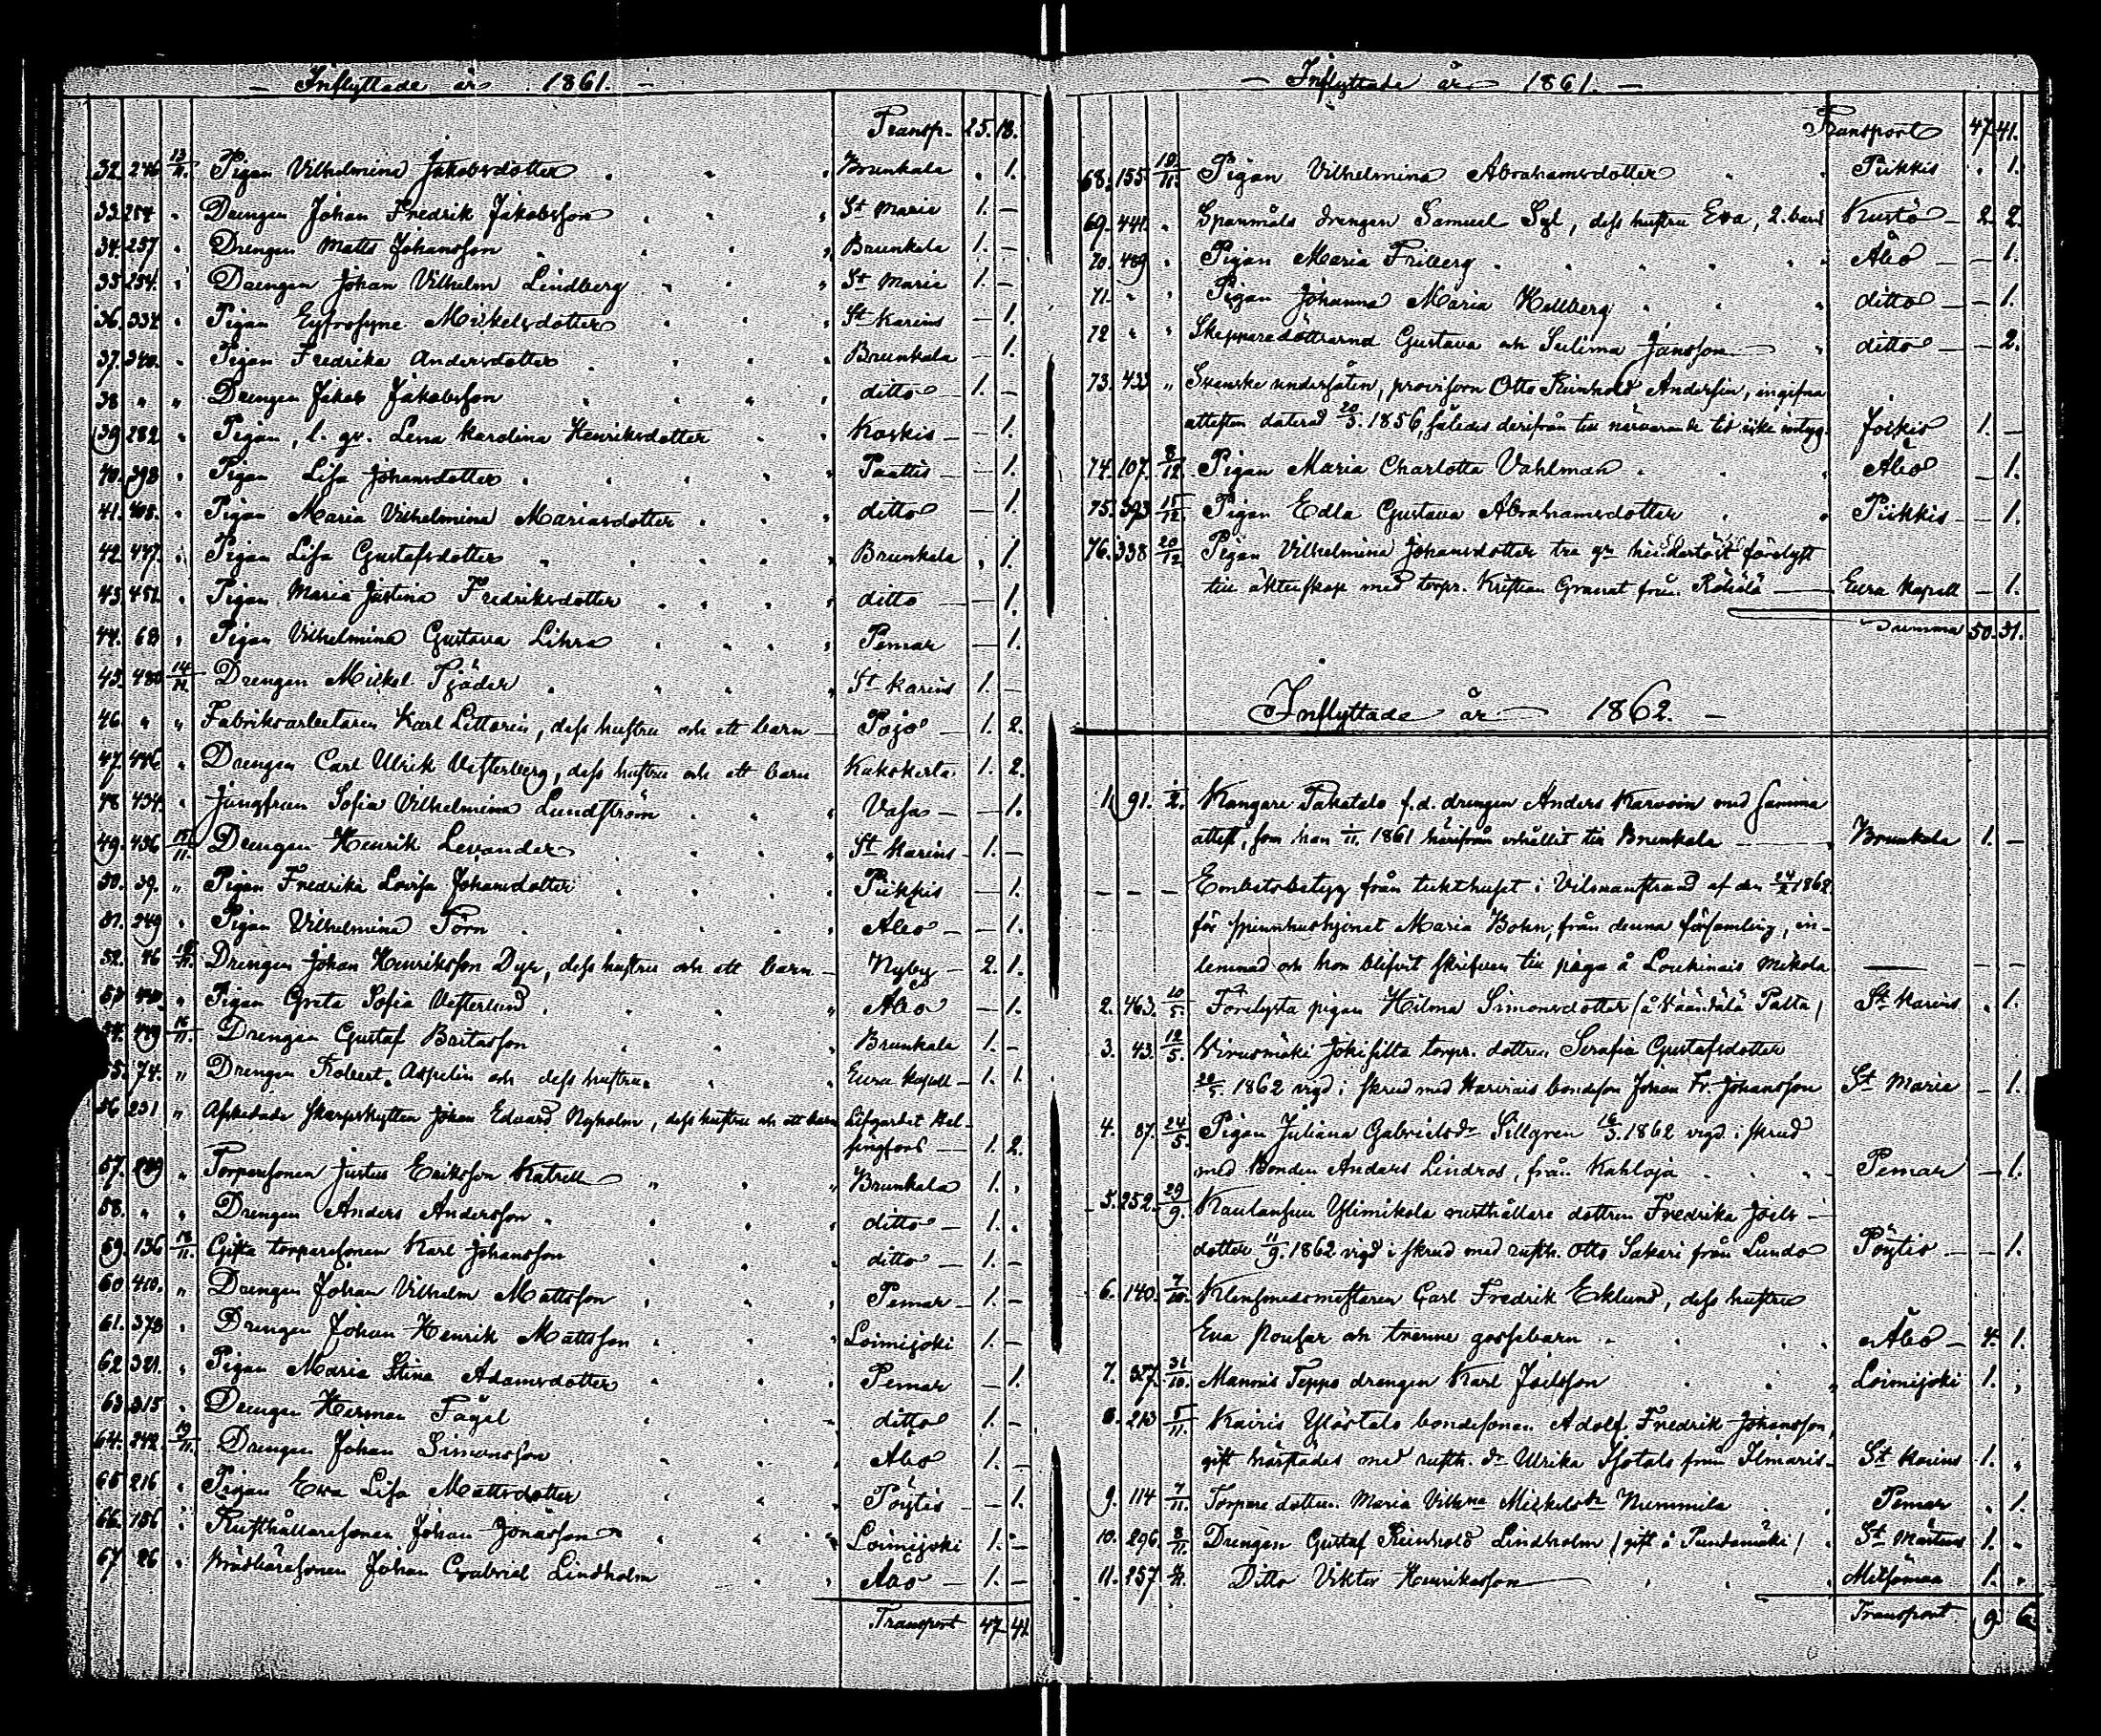 — Inflyttade år 1861. —
Transp. 25. 18.
32. 246 13/11. Pigan Vilhelmina Jakobsdotter Brunkala 1.
33. 254 Drengen Johan Fredrik Jakobsson St Marie 1. —
34. 257 Drengen Matts Johansson Brunkala 1. —
35. 254. Drengen Johan Vilhelm Lindberg St Marie 1. —
36. 334 Pigan Eyfrosyne Mickelsdotter St Karins — 1.
37. 340. Pigan Fredrika Andersdotter Brunkala — 1.
38 " " Drengen Jakob Jakobsson ditto 1. —
39 282 Pigan, l. gv. Lena Karolina Henriksdotter Koskis — — 1.
40. 398 Pigan Lisa Johansdotter Paattis — — 1.
41. 408. Pigan Maria Vilhelmina Mariasdotter ditto — 1.
42. 447. Pigan Lisa Gustafsdotter Brunkala 1.
43. 451. Pigan Maria Justina Fredriksdotter ditto — — 1.
44. 68 Pigan Vilhelmina Gustava Lihra Pemar — 1.
45. 480 14/11. Drengen Mickel Tjäder St Karins 1. —
46. " " Fabriksarbetaren Karl Littorin, dess hustru och ett barn — Pojo — 1. 2.
47. 446 Drengen Carl Ulrik Vesterberg, dess hustru och ett barn Kakskerta 1. 2.
48 434. Jungfrun Sofia Vilhelmina Lundström Vasa — — 1.
49. 436 15/11. Drengen Henrik Levander St Karins 1. —
50. 39. " Pigan Fredrika Lovisa Johansdotter Piikkis — 1.
51. 249 Pigan Vilhelmina Törn Åbo — — 1.
52. 46 Drengen Johan Henriksson Dyr, dess hustru och ett barn — Nyby — 2. 1.
53 Pigan Greta Sofia Vesterlund Åbo — 1.
54. 449 16/11. Drengen Gustaf Britasson Brunkala 1. —
55. 74. " Drengen Robert Aspelin och dess hustru Eura kapell — 1. 1.
56 231 " Afskedade skarpskytten Johan Eduard Nyholm, dess hustru och ett barn Lifgardet Hel-
singfors — 1. 2.
57. Torparesonen Justus Eriksson Katrell Brunkala 1.
58. " " Drengen Anders Andersson ditto — 1.
59. 136 18/11. Gifta torparesonen Karl Johansson ditto — 1. —
60 410. " Drengen Johan Vilhelm Mattsson Pemar — 1. —
61. 378 Drengen Johan Henrik Mattsson Loimijoki 1. —
62. 321. Pigan Maria Stina Adamsdotter Pemar — 1.
63. 315 Drengen Herman Tägel ditto 1. —
64. 242. 19/11. Drengen Johan Simonsson Åbo 1. —
65 216 Pigan Ewa Lisa Mattsdotter Pöytis — 1.
66. 156 Rusthållaresonen Johan Jonasson Loimijoki 1. —
67 26 Johan Gabriel Lindholm Åbo — 1. —
Transport 47 41
— Inflyttade år 1861. —
Transport 47. 41.
68. 155 19/11. Pigan Vilhelmina Abrahamsdotter Piikkis 1.
69. 441. Spanmåls drengen Samuel Syl, dess hustru Eva, 2. barn Kustö — 2. 2.
70. 489 Pigan Maria Friberg Åbo — — 1.
71. " " Pigan Johanna Maria Hellberg ditto — 1.
72 " " Skepparedöttrarna Gustava och Selima Jansson ditto — — 2.
73. 433 " Svenske undersåten, provisorn Otto Reinhold Andersin, ingifna
attesten daterad 20/3. 1856, således derifrån till närvarande tid icke intyg. Jokkis 1. —
74. 107. 8/12. Pigan Maria Charlotta Vahlman Åbo 1.
75. 393 15/12. Pigan Edla Gustava Abrahamsdotter Piikkis — 1.
76. 338 20/12. Pigan Vilhelmina Johansdotter tre gr. hinderlöst förelyst
till äktenskap med torpr. Kristian Granat från Röhölä — Eura Kapell — 1.
Summa 50. 51.
Inflyttade år 1862. —
1. 91. 1/2. Kangare Takatalo f.d. drengen Anders Karvoin med samma
attest, som han 1/11. 1861 härifrån erhållit till Brunkala Brunkala 1. —
— — — Embetsbetyg från tukthuset i Vilmanstrand af den 24/2 1862
för spinnhushjonet Maria Bohn, från denna församling, in-
lemnad och hon blifvit skrifven till paga å Loukinais Mikola — — —
2. 463. 10/5. Förelysta pigan Hilma Simonsdotter (å Väänttälä Palta) St Karins 1.
3. 43. 12/5. Virusmäki Jokisilta torpr. dottren Serafia Gustafsdotter
20/5. 1862 vigd i skrud med Harvais bondeson Johan Fr. Johansson St Marie — 1.
4. 87. 24/5. Pigan Juliana Gabrielsdr Sillgren 16/3. 1862 vigd i skrud
med Bonden Anders Lindros, från Kahloja Pemar — 1.
5. 252. 29/9. Kaulanpuu Ylimikola rusthållare dottren Fredrika Joels-
dotter 11/9. 1862 vigd i skrud med rusth. Otto Sakari från Lundo Pöytis — — 1.
6. 140. 7/10. Klensmedsmästaren Carl Fredrik Eklund, dess hustru
Eva och trenne gossebarn Åbo — 4. 1.
7. 327. 31/10. Mannis Teppo drengen Karl Joelsson Loimijoki 1.
8. 213 5/11. Kairis Yliörtalo bondesonen Adolf Fredrik Johansson,
gift härstädes med rusth. dr Ulrika Isotalo från Ilmaris — St Karins 1.
9. 114 7/11. Torpare dottren Maria Vilhna Mickelsdr Nummila Pemar 1.
10. 296. 8/11. Drengen Gustaf Reinhold Lindholm / gift å Puntamäki / St Mårtens 1.
11. 257 Ditto Viktor Henriksson — Metsämaa 1.
Transport 9. 6.